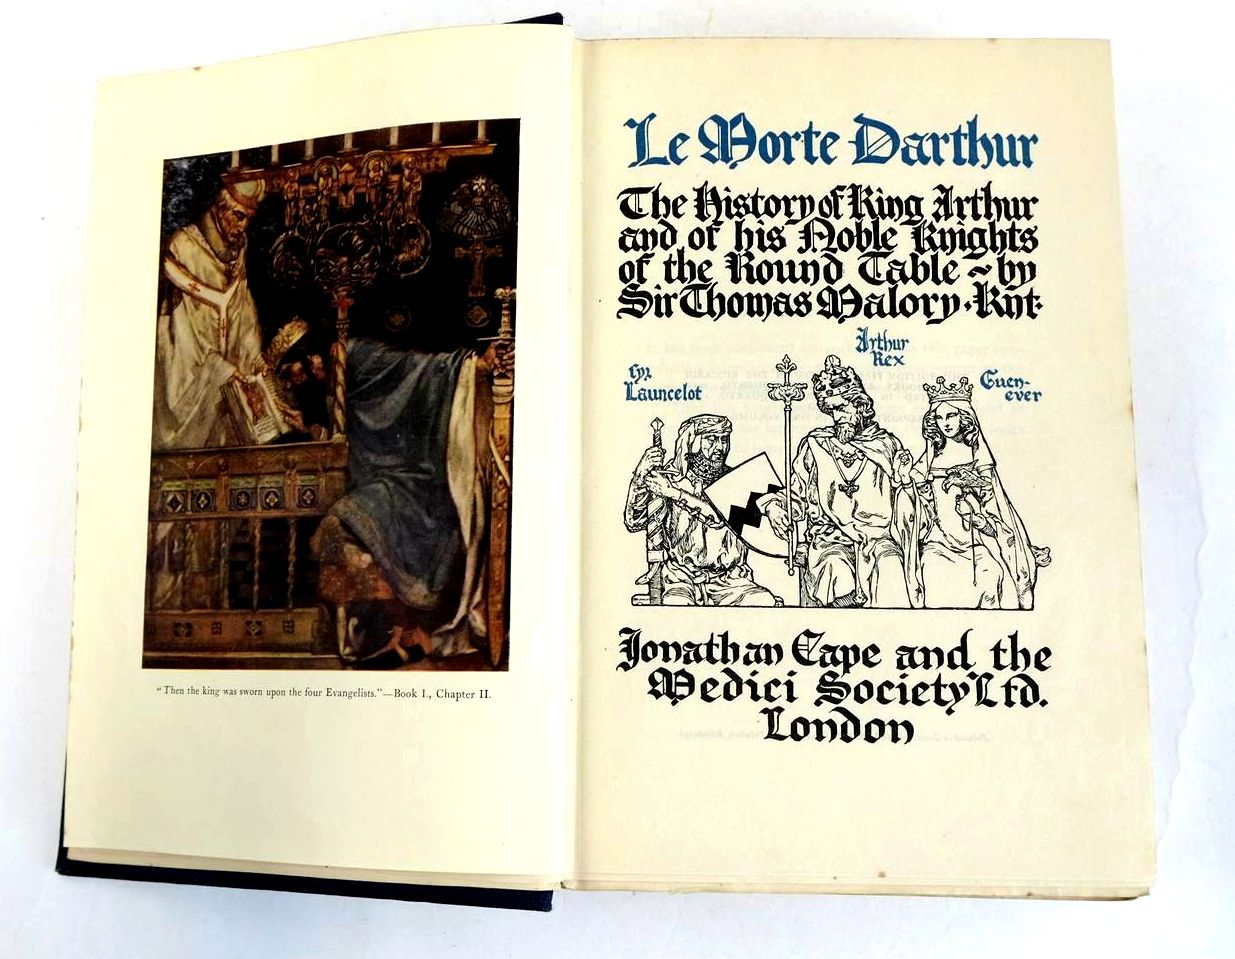 "Then the king was sworn upon the four Evangelists."—Book I., Chapter II.
Le Morte Darthur
The History of King Arthur
and of his Noble Knights
of the Round Table ~ by
Sir Thomas Malory · Knt·
Arthur
Rex
Syr
Launcelot
Guen-
ever
Jonathan Cape and the
Medici Society Ltd.
London